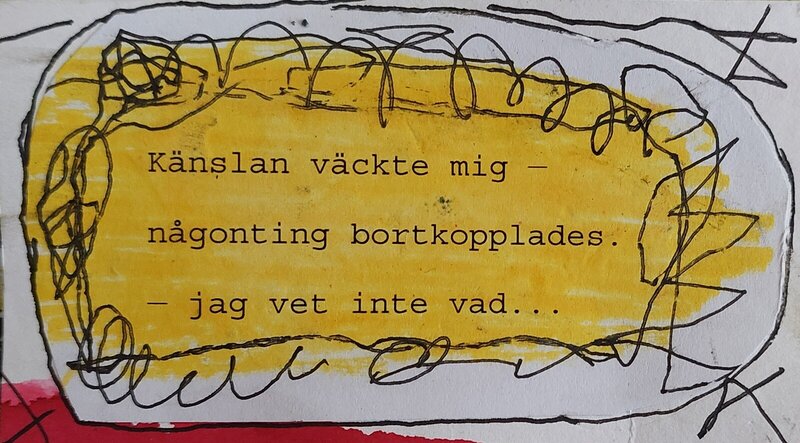 Känslan väckte mig —
någonting bortkopplades.
— jag vet inte vad...